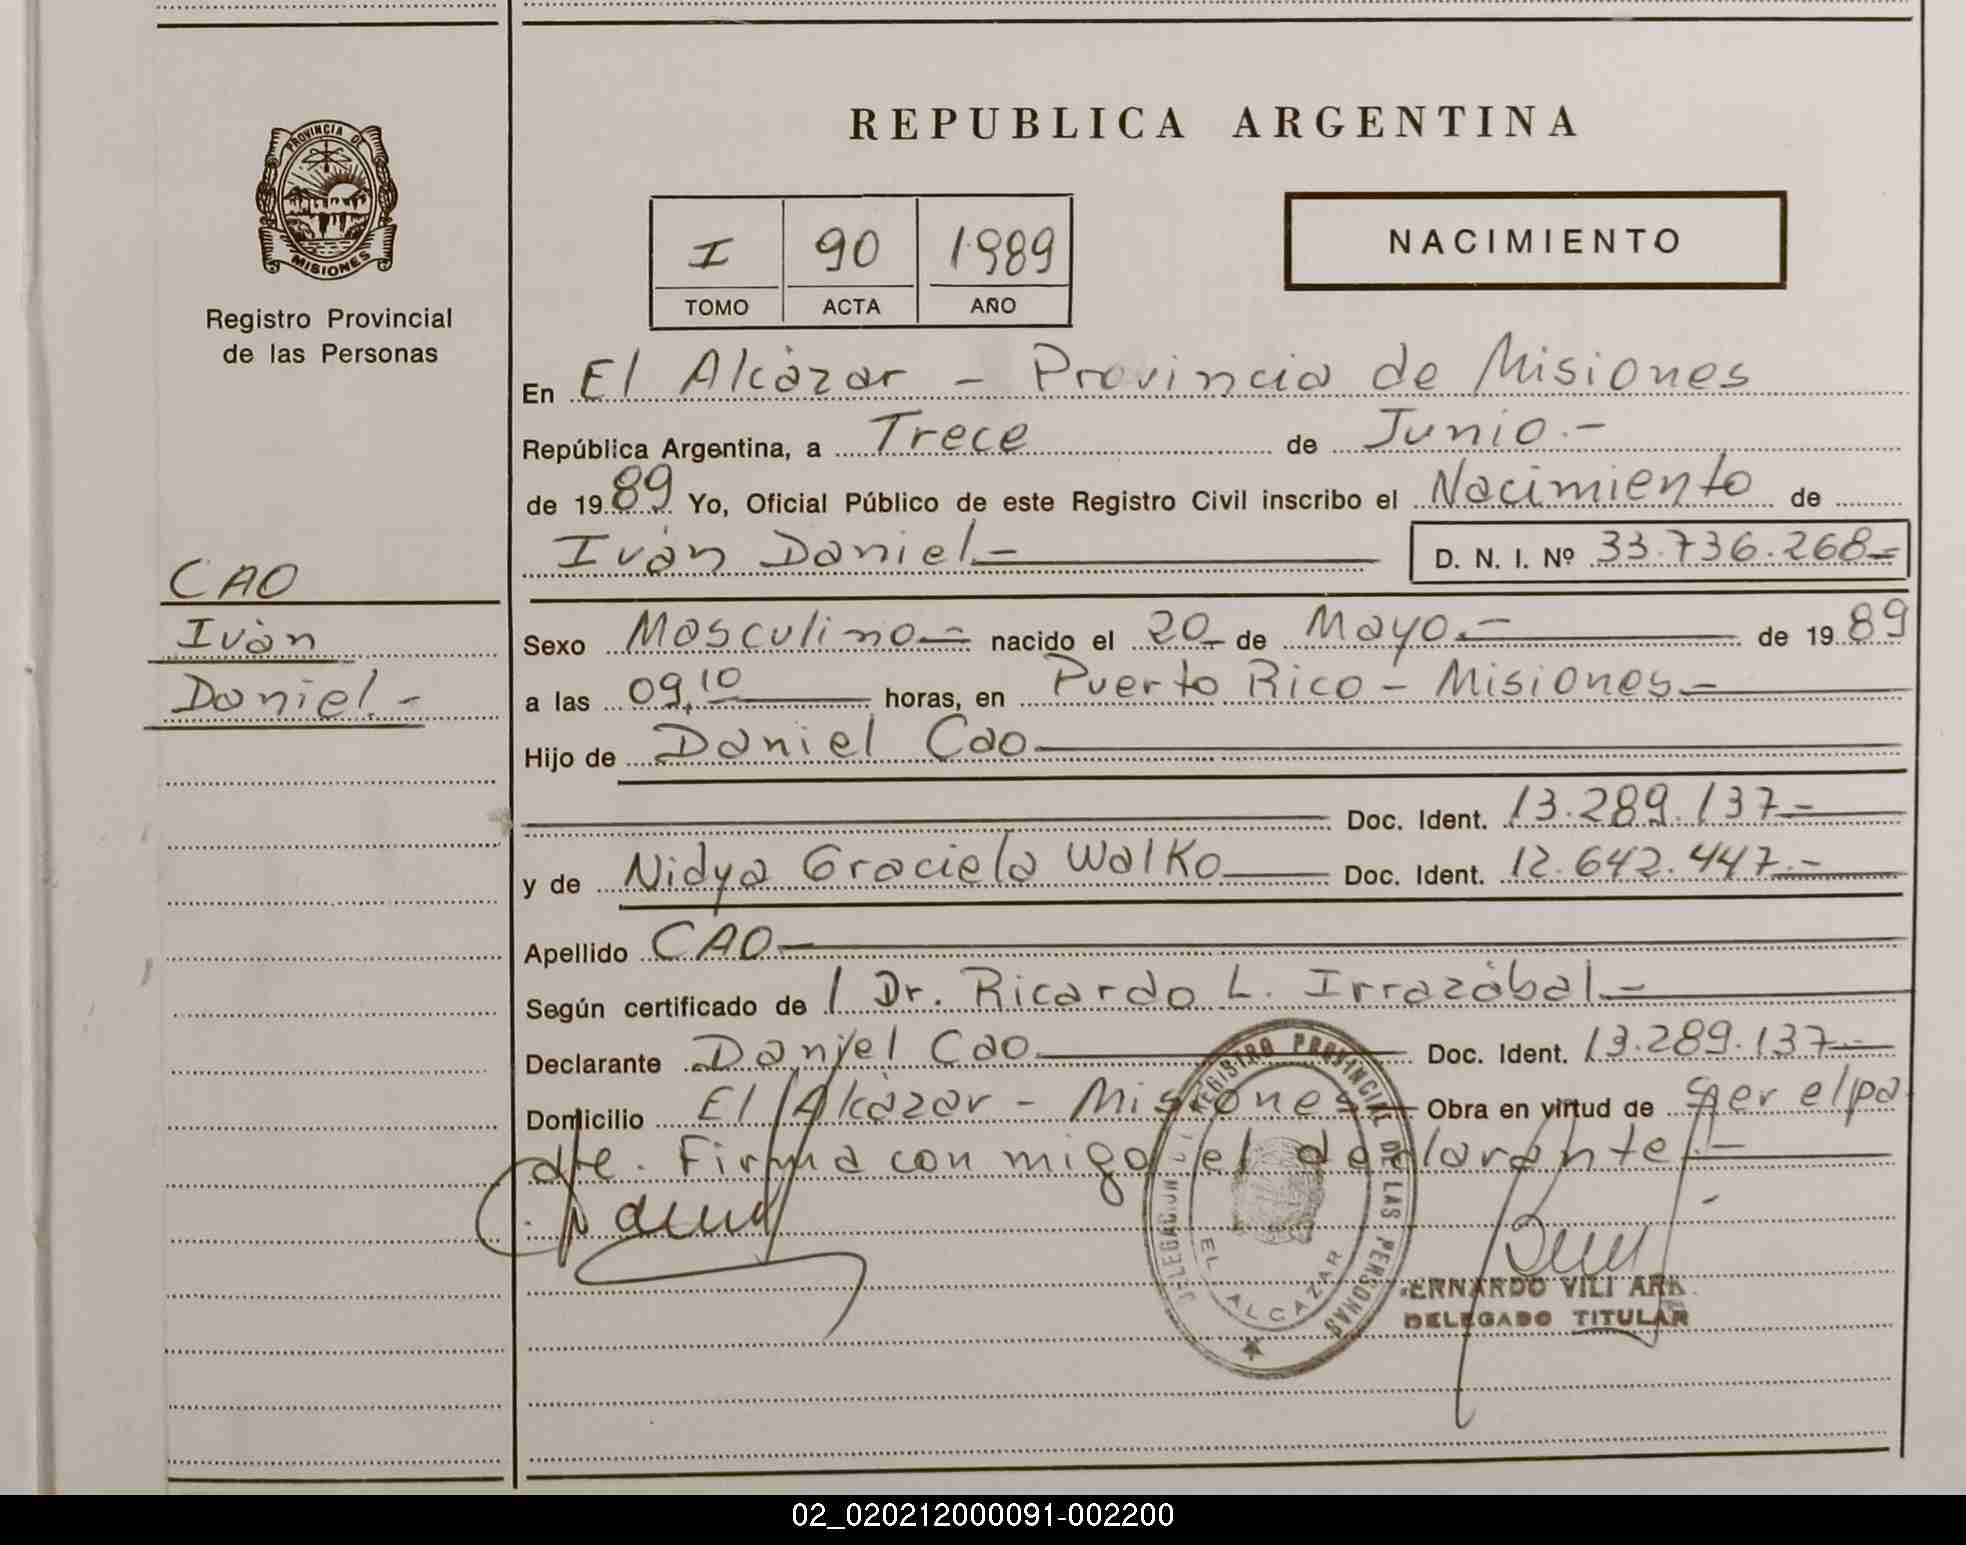 REPUBLICA ARGENTINA
PROVINCIA DE
MISIONES
Registro Provincial
de las Personas
I 90 1989
TOMO ACTA AÑO
NACIMIENTO
En El Alcázar - Provincia de Misiones
República Argentina, a Trece de Junio.-
de 1989 Yo, Oficial Público de este Registro Civil inscribo el Nacimiento de
Iván Daniel.- D. N. I. Nº 33.736.268-
CAO
Iván
Daniel.-
Sexo Masculino- nacido el 20- de Mayo.- de 1989
a las 09,10 horas, en Puerto Rico - Misiones.-
Hijo de Daniel Cao
Doc. Ident. 13.289.137.-
y de Nidya Graciela Walko Doc. Ident. 12.642.447.-
Apellido CAO
Según certificado de / Dr. Ricardo L. Irrazábal.-
Declarante Daniel Cao Doc. Ident. 13.289.137.-
Domicilio El Alcázar - Misiones Obra en virtud de ser el pa
dre. Firma con migo el declarante.-
REGISTRO PROVINCIAL DE LAS PERSONAS
EL ALCAZAR
DELEGADO TITULAR
02_020212000091-002200